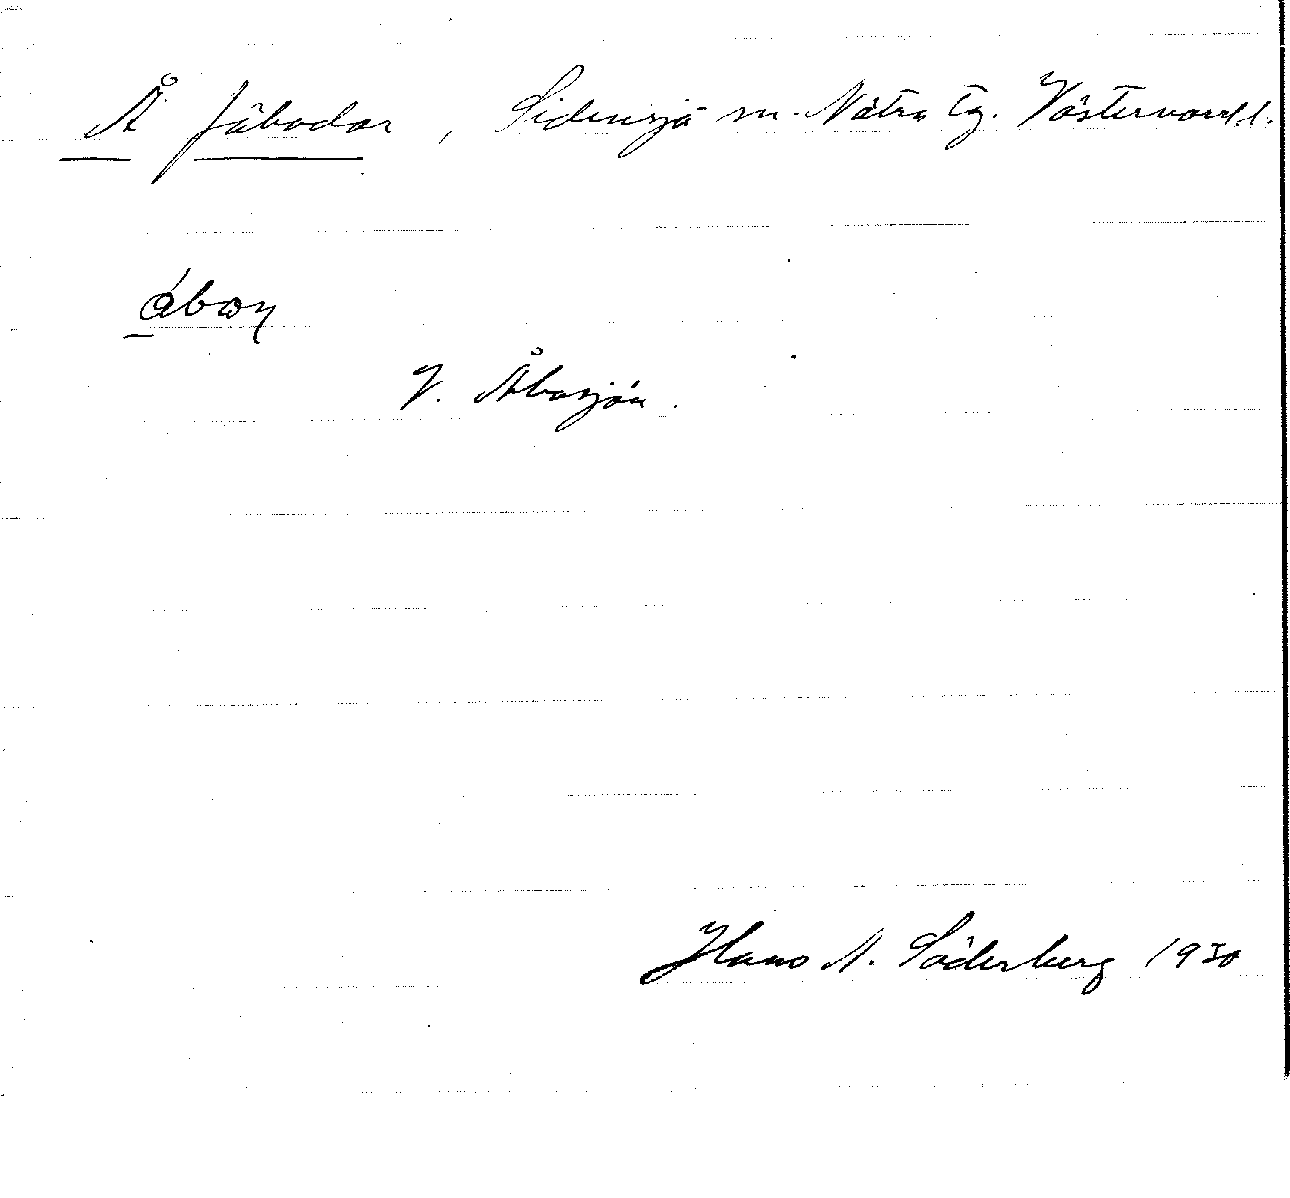 Å fäbodar, Sidensjö sn. Nätra tg. Västernorrl. l.
åboŋ
V. Åbosjön.
Hans A. Söderberg 1930